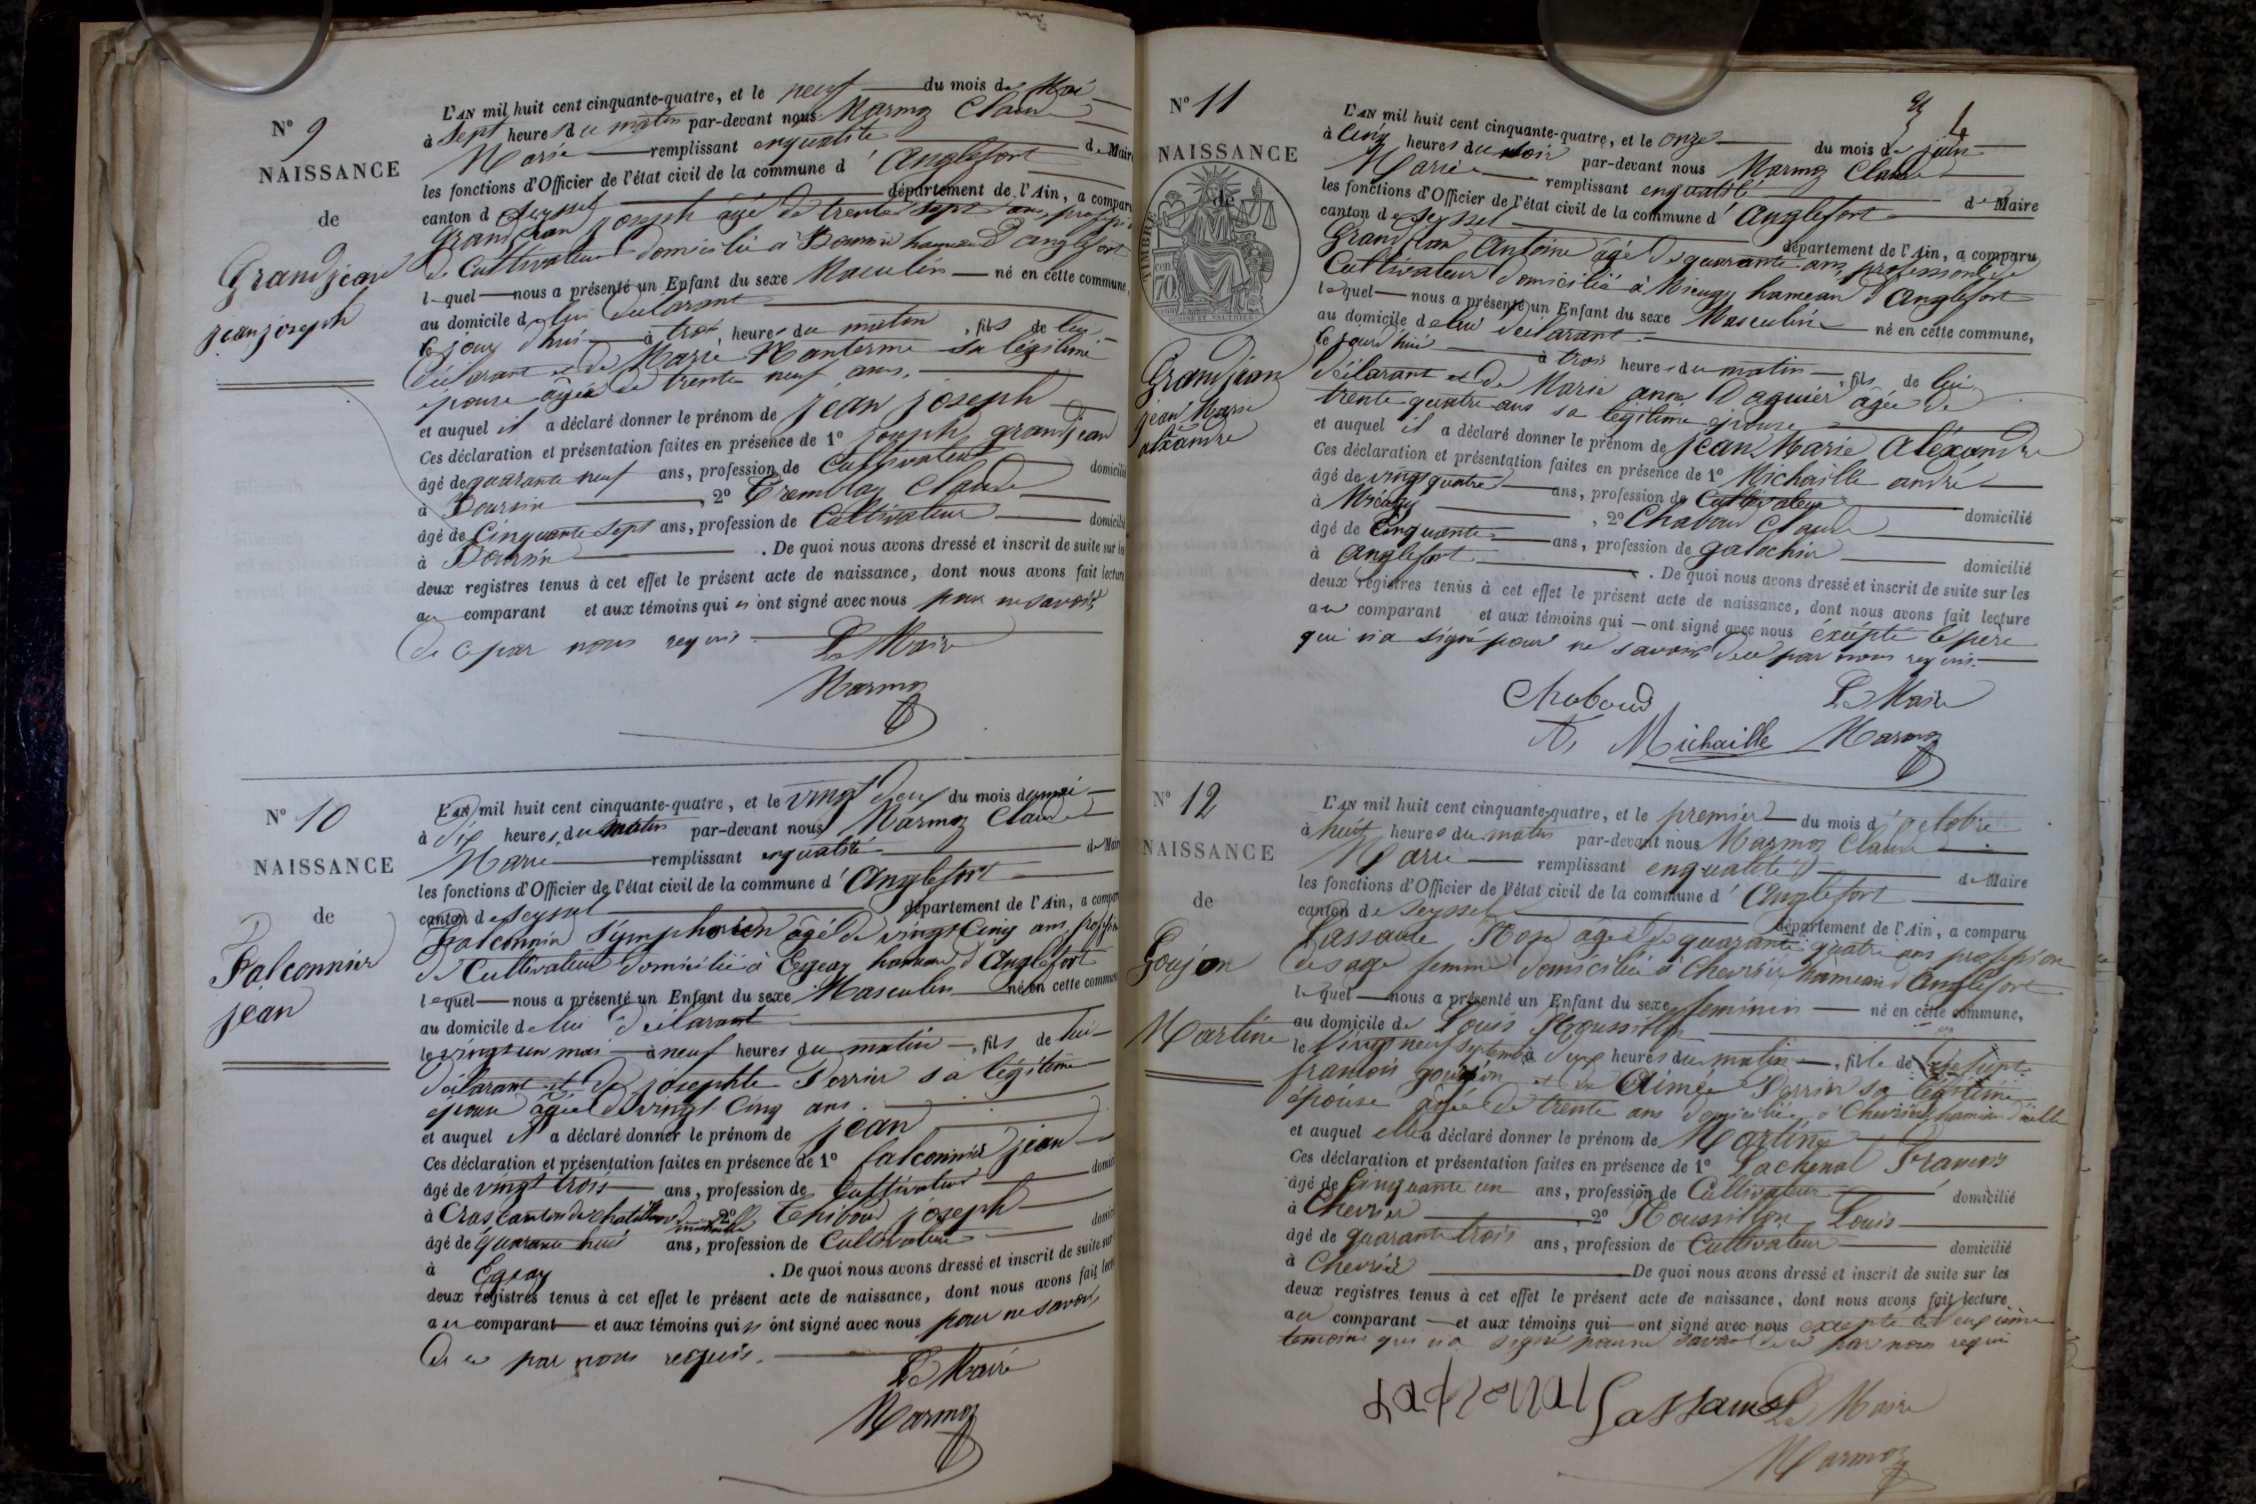 N° 9
NAISSANCE
de
Grandjean
jean joseph
L'AN mil huit cent cinquante-quatre, et le neuf du mois de Mai
à Sept heures du matin par-devant nous Marmoz Claude
Marie remplissant en qualité de Maire
les fonctions d'Officier de l'état civil de la commune d'Anglefort
canton de Seyssel département de l'Ain, a comparu
Grandjean joseph âgé de trente sept ans, profession
de Cultivateur domicilié à Boursin hameau d'anglefort
lequel nous a présenté un Enfant du sexe Masculin né en cette commune,
au domicile de lui déclarant
Cejourd'hui à trois heures du matin, fils de lui
déclarant et de Marie Manterme sa légitime
épouse âgée de trente neuf ans.
et auquel il a déclaré donner le prénom de jean joseph
Ces déclaration et présentation faites en présence de 1° joseph grandjean
âgé de quarante neuf ans, profession de Cultivateur domicilié
à Boursin, 2° Tremblay Claude
âgé de Cinquante sept ans, profession de Cultivateur domicilié
à Boursin. De quoi nous avons dressé et inscrit de suite sur les
deux registres tenus à cet effet le présent acte de naissance, dont nous avons fait lecture
au comparant et aux témoins qui n'ont signé avec nous pour ne savoir
de ce par nous requis.
Le Maire
Marmoz
N° 10
NAISSANCE
de
Falconnier
jean
L'AN mil huit cent cinquante-quatre, et le vingt deux du mois de mai
à dix heures du matin par-devant nous Marmoz Claude
Marie remplissant en qualité de Maire
les fonctions d'Officier de l'état civil de la commune d'Anglefort
canton de Seyssel département de l'Ain, a comparu
falconnier Symphorien âgé de vingt Cinq ans, profession
de Cultivateur domicilié à Egeay hameau d'Anglefort
lequel nous a présenté un Enfant du sexe Masculin né en cette commune
au domicile de lui déclarant
le vingt un mai à neuf heures du matin, fils de lui
déclarant et de josephte Perrier sa légitime
épouse âgée de vingt Cinq ans.
et auquel il a déclaré donner le prénom de jean
Ces déclaration et présentation faites en présence de 1° falconnier jean
âgé de vingt trois ans, profession de Cultivateur domicilié
à Cras canton de chatillon de michaille, 2° Thiboud joseph
âgé de quarante huit ans, profession de Cultivateur domicilié
à Egeay. De quoi nous avons dressé et inscrit de suite sur
deux registres tenus à cet effet le présent acte de naissance, dont nous avons fait lecture
au comparant et aux témoins qui n'ont signé avec nous pour ne savoir
de ce par nous requis.
Le Maire
Marmoz
4
N° 11
NAISSANCE
de
TIMBRE
70
Grandjean
jean Marie
alexandre
L'AN mil huit cent cinquante-quatre, et le onze du mois de juin
à Cinq heures du soir par-devant nous Marmoz Claude
Marie remplissant en qualité de Maire
les fonctions d'Officier de l'état civil de la commune d'Anglefort
canton de Seyssel département de l'Ain, a comparu
Grandjean Antoine âgé de quarante ans, profession de
Cultivateur domicilié à Mieugy hameau d'Anglefort
lequel nous a présenté un Enfant du sexe Masculin né en cette commune,
au domicile de lui déclarant
Cejourd'hui à trois heures du matin, fils de lui
déclarant et de Marie anne Daguier âgée de
trente quatre ans sa légitime épouse
et auquel il a déclaré donner le prénom de jean Marie Alexandre
Ces déclaration et présentation faites en présence de 1° Michaille andré
âgé de vingt quatre ans, profession de Cultivateur domicilié
à Mieugy, 2° Chaboud Claude
âgé de Cinquante ans, profession de galochier domicilié
à Anglefort. De quoi nous avons dressé et inscrit de suite sur les
deux registres tenus à cet effet le présent acte de naissance, dont nous avons fait lecture
au comparant et aux témoins qui ont signé avec nous excepté le père
qui n'a signé pour ne savoir de ce par nous requis.
Chaboud Le Maire
A, Michaille Marmoz
N° 12
NAISSANCE
de
Goujon
Martine
L'AN mil huit cent cinquante-quatre, et le premier du mois d'octobre
à huit heures du matin par-devant nous Marmoz Claude
Marie remplissant en qualité de Maire
les fonctions d'Officier de l'état civil de la commune d'Anglefort
canton de Seyssel département de l'Ain, a comparu
Lassaute Rose âgée de quarante quatre ans profession
de sage femme domiciliée à Chevrier hameau d'Anglefort
lequel nous a présenté un Enfant du sexe feminin né en cette commune,
au domicile de Louis Roussillon
le vingt neuf septembre à deux heures du matin, fille de
françois goujon et de Aimée Perrin sa légitime
épouse âgée de trente ans domiciliée à Chevrier hameau
et auquel elle a déclaré donner le prénom de Martine
Ces déclaration et présentation faites en présence de 1° Lachenal François
âgé de Cinquante un ans, profession de Cultivateur domicilié
à Chevrier, 2° Roussillon Louis
âgé de quarante trois ans, profession de Cultivateur domicilié
à Chevrier De quoi nous avons dressé et inscrit de suite sur les
deux registres tenus à cet effet le présent acte de naissance, dont nous avons fait lecture
au comparant et aux témoins qui ont signé avec nous excepté le deuxième
témoin qui n'a signé pour ne savoir de ce par nous requis
Lachenal Le Maire
Marmoz